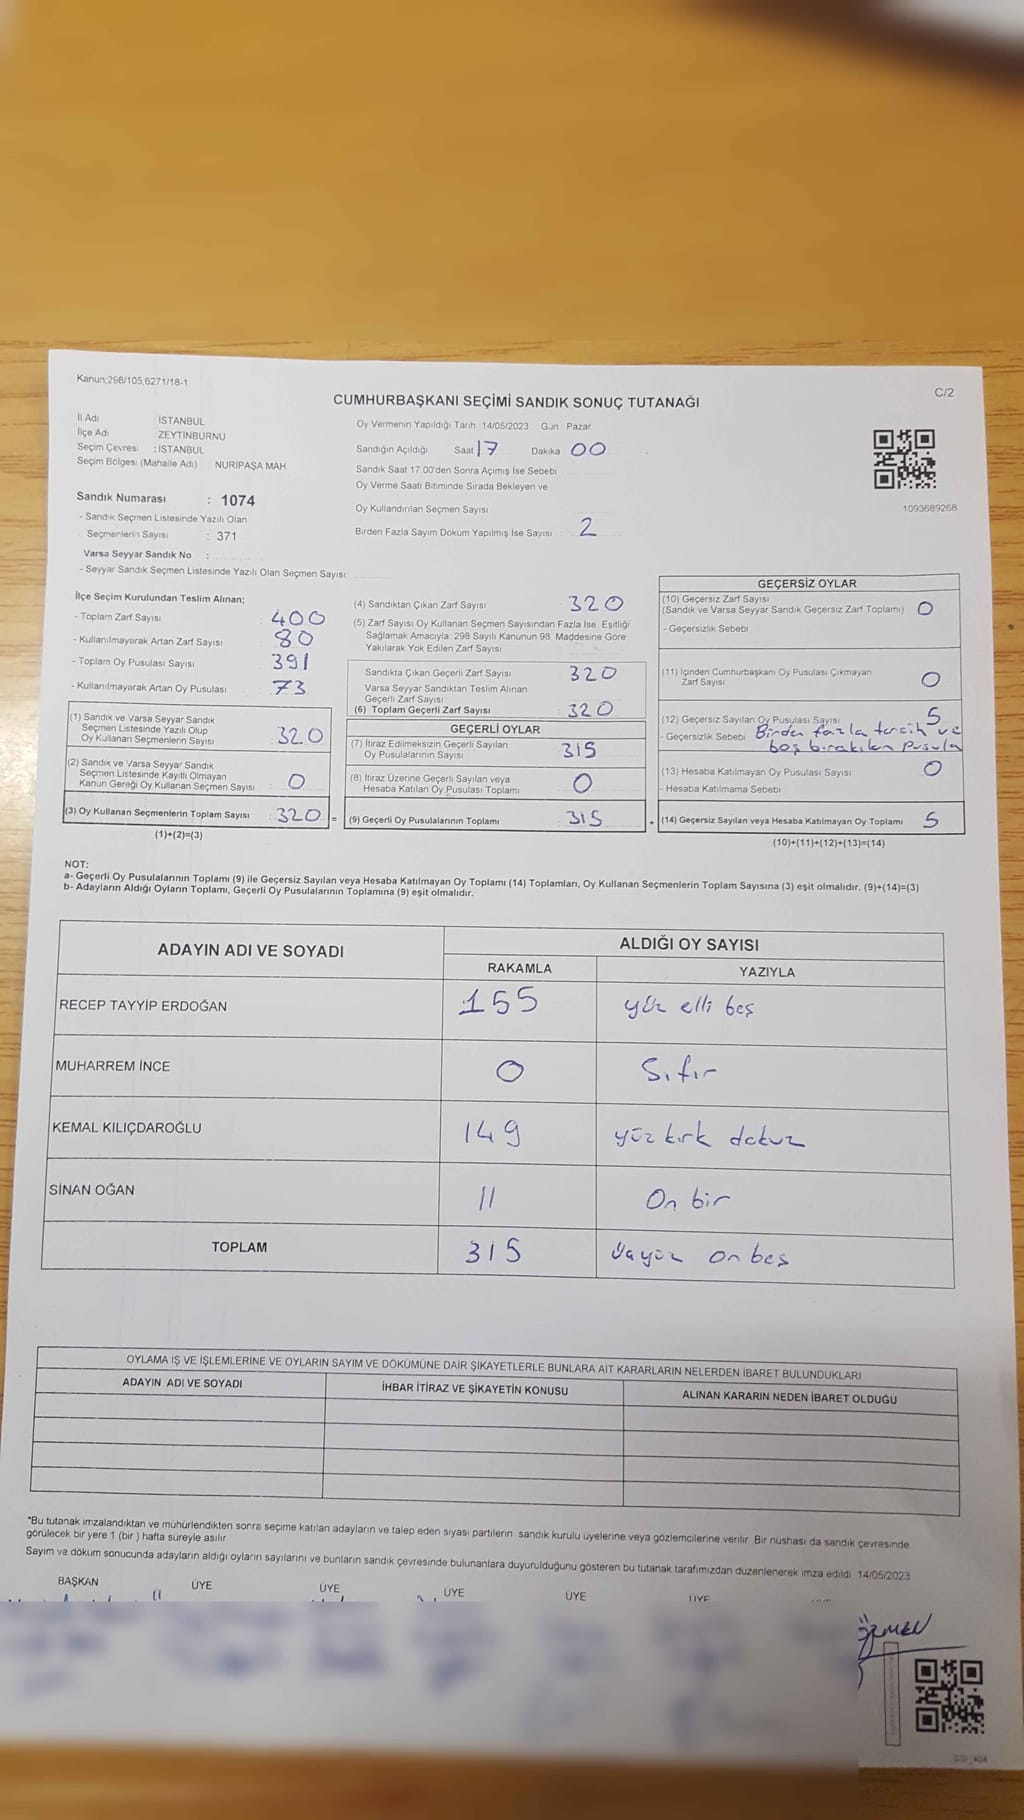 Kanun:298/105,6271/18-1
C/2
CUMHURBAŞKANI SEÇİMİ SANDIK SONUÇ TUTANAĞI
İl Adı : İSTANBUL
İlçe Adı : ZEYTİNBURNU
Seçim Çevresi : İSTANBUL
Seçim Bölgesi (Mahalle Adı) : NURİPAŞA MAH
Sandık Numarası : 1074
- Sandık Seçmen Listesinde Yazılı Olan
Seçmenlerin Sayısı : 371
Varsa Seyyar Sandık No :
- Seyyar Sandık Seçmen Listesinde Yazılı Olan Seçmen Sayısı:
Oy Vermenin Yapıldığı Tarih 14/05/2023 Gün Pazar
Sandığın Açıldığı Saat 17 Dakika 00
Sandık Saat 17.00'den Sonra Açımış İse Sebebi
Oy Verme Saati Bitiminde Sırada Bekleyen ve
Oy Kullandırılan Seçmen Sayısı
Birden Fazla Sayım Döküm Yapılmış İse Sayısı 2
1093689268
İlçe Seçim Kurulundan Teslim Alınan;
- Toplam Zarf Sayısı : 400
- Kullanılmayarak Artan Zarf Sayısı : 80
- Toplam Oy Pusulası Sayısı : 391
- Kullanılmayarak Artan Oy Pusulası : 73
(1) Sandık ve Varsa Seyyar Sandık
Seçmen Listesinde Yazılı Olup
Oy Kullanan Seçmenlerin Sayısı : 320
(2) Sandık ve Varsa Seyyar Sandık
Seçmen Listesinde Kayıtlı Olmayan
Kanun Gereği Oy Kullanan Seçmen Sayısı : 0
(3) Oy Kullanan Seçmenlerin Toplam Sayısı : 320
(1)+(2)=(3)
(4) Sandıktan Çıkan Zarf Sayısı 320
(5) Zarf Sayısı Oy Kullanan Seçmen Sayısından Fazla İse, Eşitliği
Sağlamak Amacıyla; 298 Sayılı Kanunun 98. Maddesine Göre
Yakılarak Yok Edilen Zarf Sayısı
Sandıkta Çıkan Geçerli Zarf Sayısı 320
Varsa Seyyar Sandıktan Teslim Alınan
Geçerli Zarf Sayısı
(6) Toplam Geçerli Zarf Sayısı 320
GEÇERLİ OYLAR
(7) İtiraz Edilmeksizin Geçerli Sayılan
Oy Pusulalarının Sayısı 315
(8) İtiraz Üzerine Geçerli Sayılan veya
Hesaba Katılan Oy Pusulası Toplamı 0
= (9) Geçerli Oy Pusulalarının Toplamı 315
GEÇERSİZ OYLAR
(10) Geçersiz Zarf Sayısı
(Sandık ve Varsa Seyyar Sandık Geçersiz Zarf Toplamı) 0
- Geçersizlik Sebebi
(11) İçinden Cumhurbaşkanı Oy Pusulası Çıkmayan
Zarf Sayısı 0
(12) Geçersiz Sayılan Oy Pusulası Sayısı 5
- Geçersizlik Sebebi Birden fazla tercih ve
boş bırakılan pusula
(13) Hesaba Katılmayan Oy Pusulası Sayısı 0
- Hesaba Katılmama Sebebi
+ (14) Geçersiz Sayılan veya Hesaba Katılmayan Oy Toplamı 5
(10)+(11)+(12)+(13)=(14)
NOT:
a- Geçerli Oy Pusulalarının Toplamı (9) ile Geçersiz Sayılan veya Hesaba Katılmayan Oy Toplamı (14) Toplamları, Oy Kullanan Seçmenlerin Toplam Sayısına (3) eşit olmalıdır. (9)+(14)=(3)
b- Adayların Aldığı Oyların Toplamı, Geçerli Oy Pusulalarının Toplamına (9) eşit olmalıdır.
ADAYIN ADI VE SOYADI
ALDIĞI OY SAYISI
RAKAMLA YAZIYLA
RECEP TAYYİP ERDOĞAN 155 yüz elli beş
MUHARREM İNCE 0 Sıfır
KEMAL KILIÇDAROĞLU 149 yüz kırk dokuz
SİNAN OĞAN 11 On bir
TOPLAM 315 üçyüz on beş
OYLAMA İŞ VE İŞLEMLERİNE VE OYLARIN SAYIM VE DÖKÜMÜNE DAİR ŞİKAYETLERLE BUNLARA AİT KARARLARIN NELERDEN İBARET BULUNDUKLARI
ADAYIN ADI VE SOYADI İHBAR İTİRAZ VE ŞİKAYETİN KONUSU ALINAN KARARIN NEDEN İBARET OLDUĞU
*Bu tutanak imzalandıktan ve mühürlendikten sonra seçime katılan adayların ve talep eden siyasi partilerin sandık kurulu üyelerine veya gözlemcilerine verilir. Bir nüshası da sandık çevresinde
görülecek bir yere 1 (bir) hafta süreyle asılır.
Sayım ve döküm sonucunda adayların aldığı oyların sayılarını ve bunların sandık çevresinde bulunanlara duyurulduğunu gösteren bu tutanak tarafımızdan düzenlenerek imza edildi. 14/05/2023
BAŞKAN ÜYE ÜYE ÜYE ÜYE ÜYE